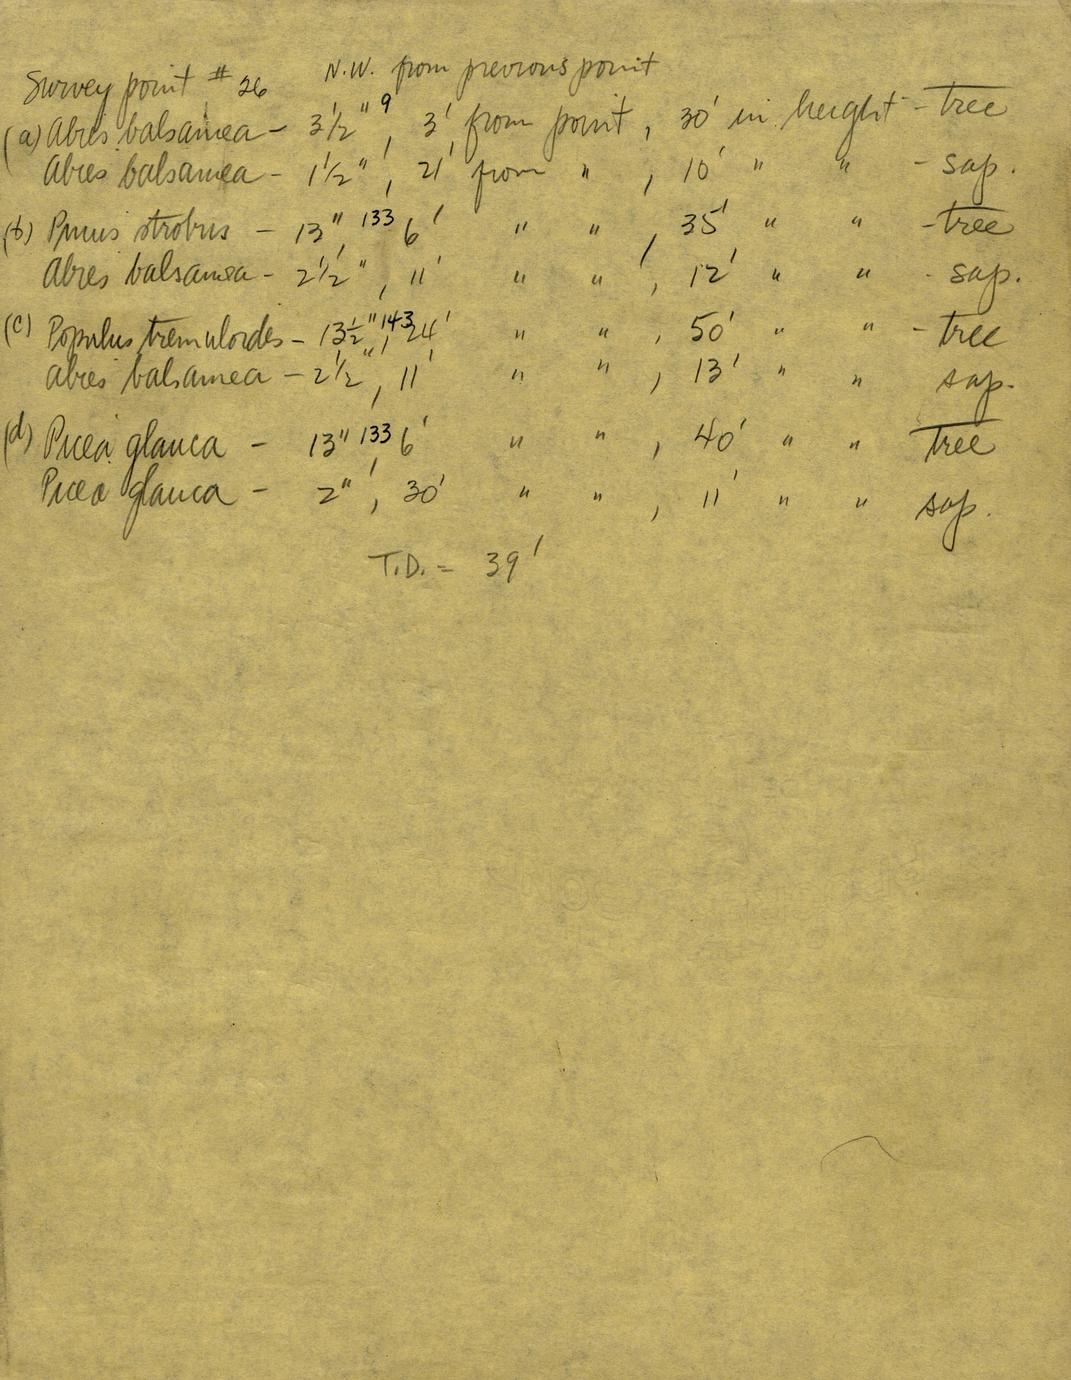 Survey point # 26 N.W. from previous point
(a) Abies balsamea - 3½" 9, 3' from point, 30' in height - tree
Abies balsamea - 1½", 21' from ", 10' " " - sap.
(b) Pinus strobus - 13", 133 6' " " , 35' " " - tree
Abies balsamea - 2½", 11' " " , 12' " " - sap.
(c) Populus tremuloides - 13½", 143 24' " " , 50' " " - tree
Abies balsamea - 2½", 11' " " , 13' " " sap.
(d) Picea glauca - 13" 133, 6' " " , 40' " " tree
Picea glauca - 2", 30' " " , 11' " " sap.
T.D. = 39'